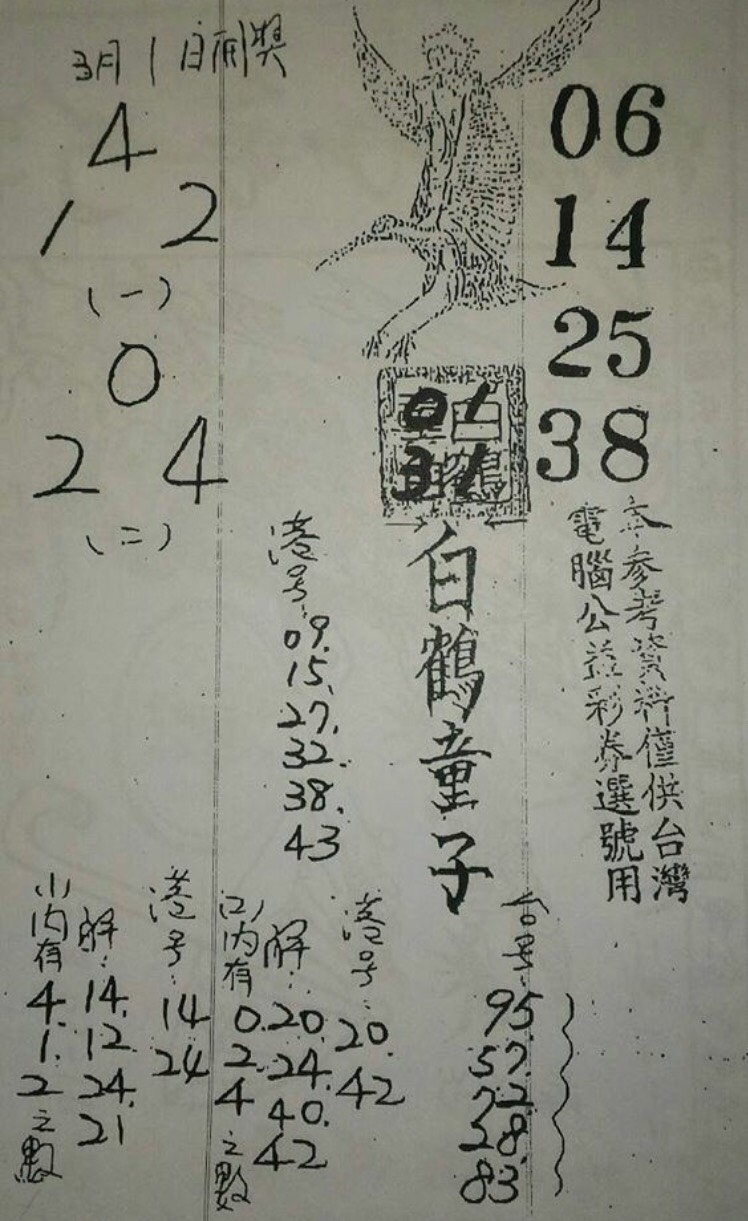 3月1日開獎
4
1 2
(一)
0
2 4
(二)
06
14
25
38
01
31
白鶴童子
本參考資料僅供台灣
電腦公益彩券選號用
港号:
09.
15.
27.
32.
38.
43
台号:
95.
57.
72.
28.
83.
港号:
20.
42
(2)內有
0.
2.
4
之數
解:
20.
24.
40.
42
港号:
14
24
(1)內有
4.
1.
2
之數
解:
14.
12.
24.
21